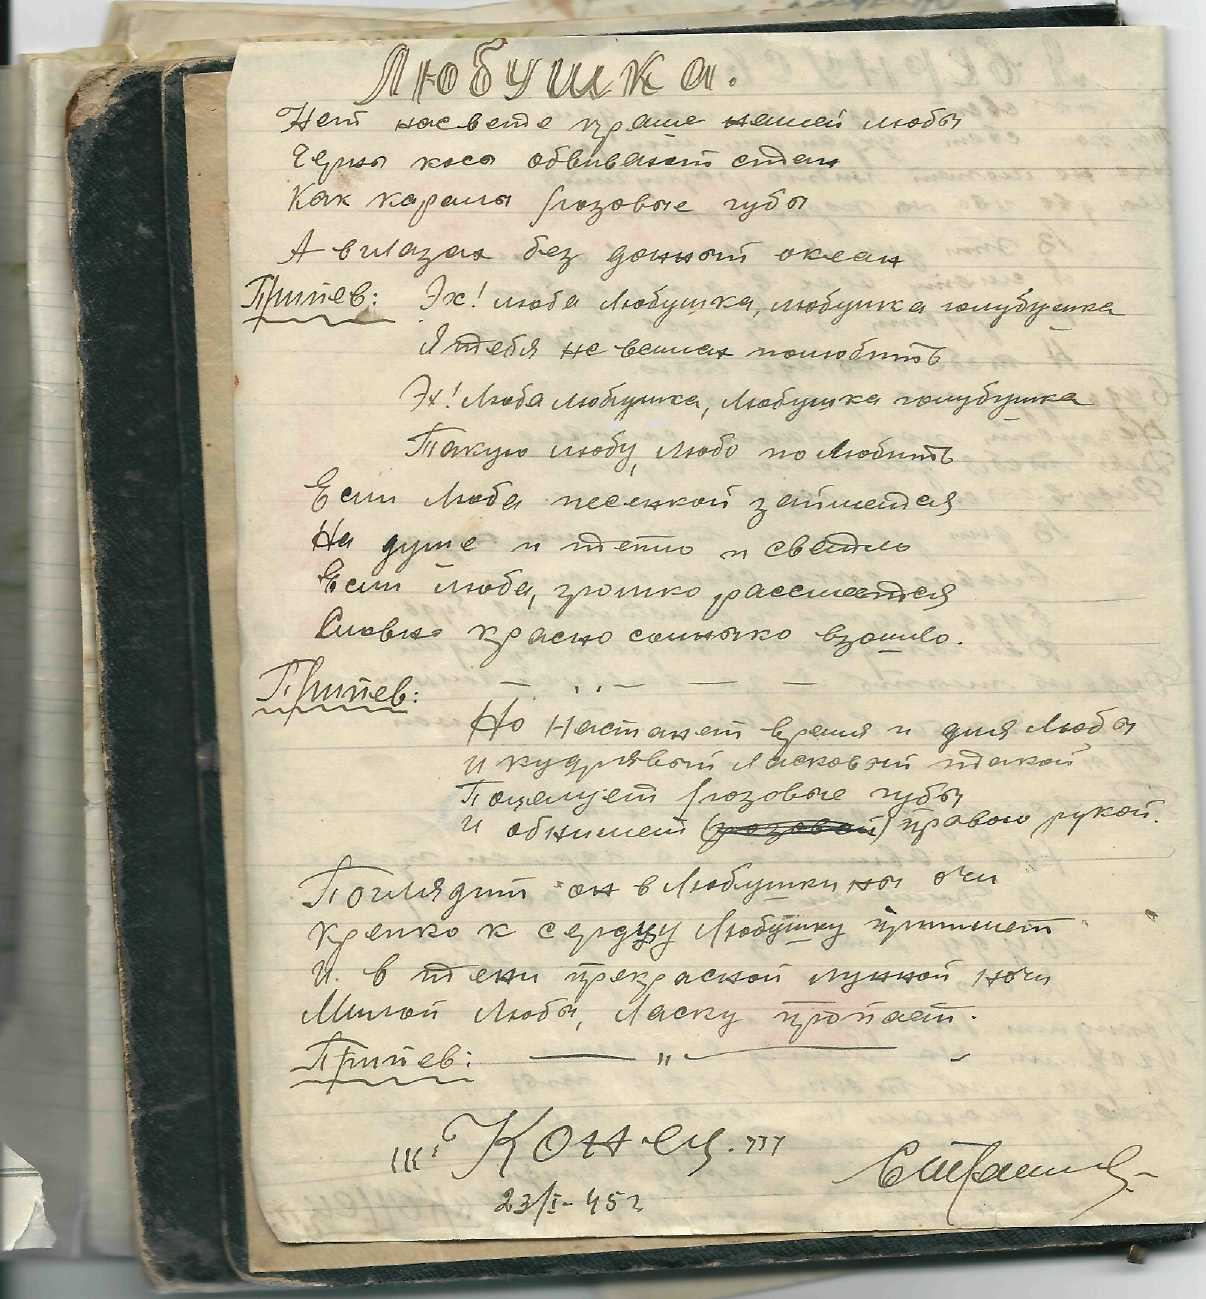 Любушка.
Нет насвете краше нашей любы
Черны косы обвивают стан
Как каралы розовые губы
А вглазах без донный океан
Припев: Эх! люба Любушка, любушка голубушка
Я тебя не вешах полюбить
Эх! Люба Любушка, Любушка голубушка
Такую любу, любо по Любить
Если Люба песенкой займется
На душе и тепло и светло
Если люба, громко рассмется
Словно красно солнышко взошло.
Припев: — „ — — —
Но Настанет время и для Любы
и кудрявый Ласковый такой
Поцелует розовые губы
и обнимет (розовой) правою рукой.
Поглядит он в Любушкины очи
Крепко к сердцу Любушку прижмет
И в тени прекрасной лунной ночи
Милой Любы, Ласку пропает.
Припев: — „ —
Конец.
23/I-45 г